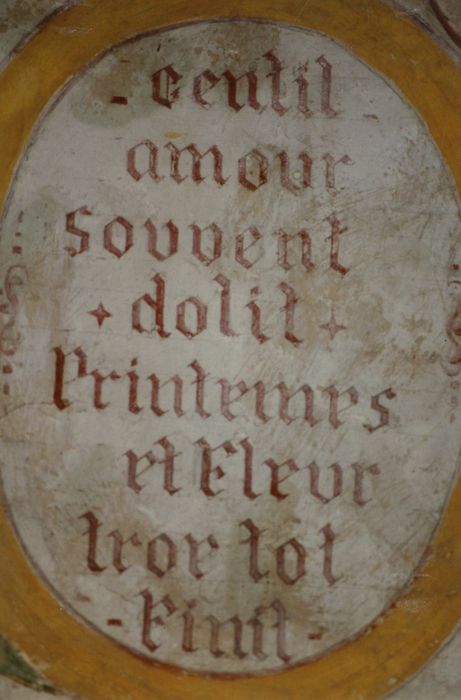 - Gentil
amour
souvent
+ dolit +
Printemps
et Fleur
trop tot
- Finit -